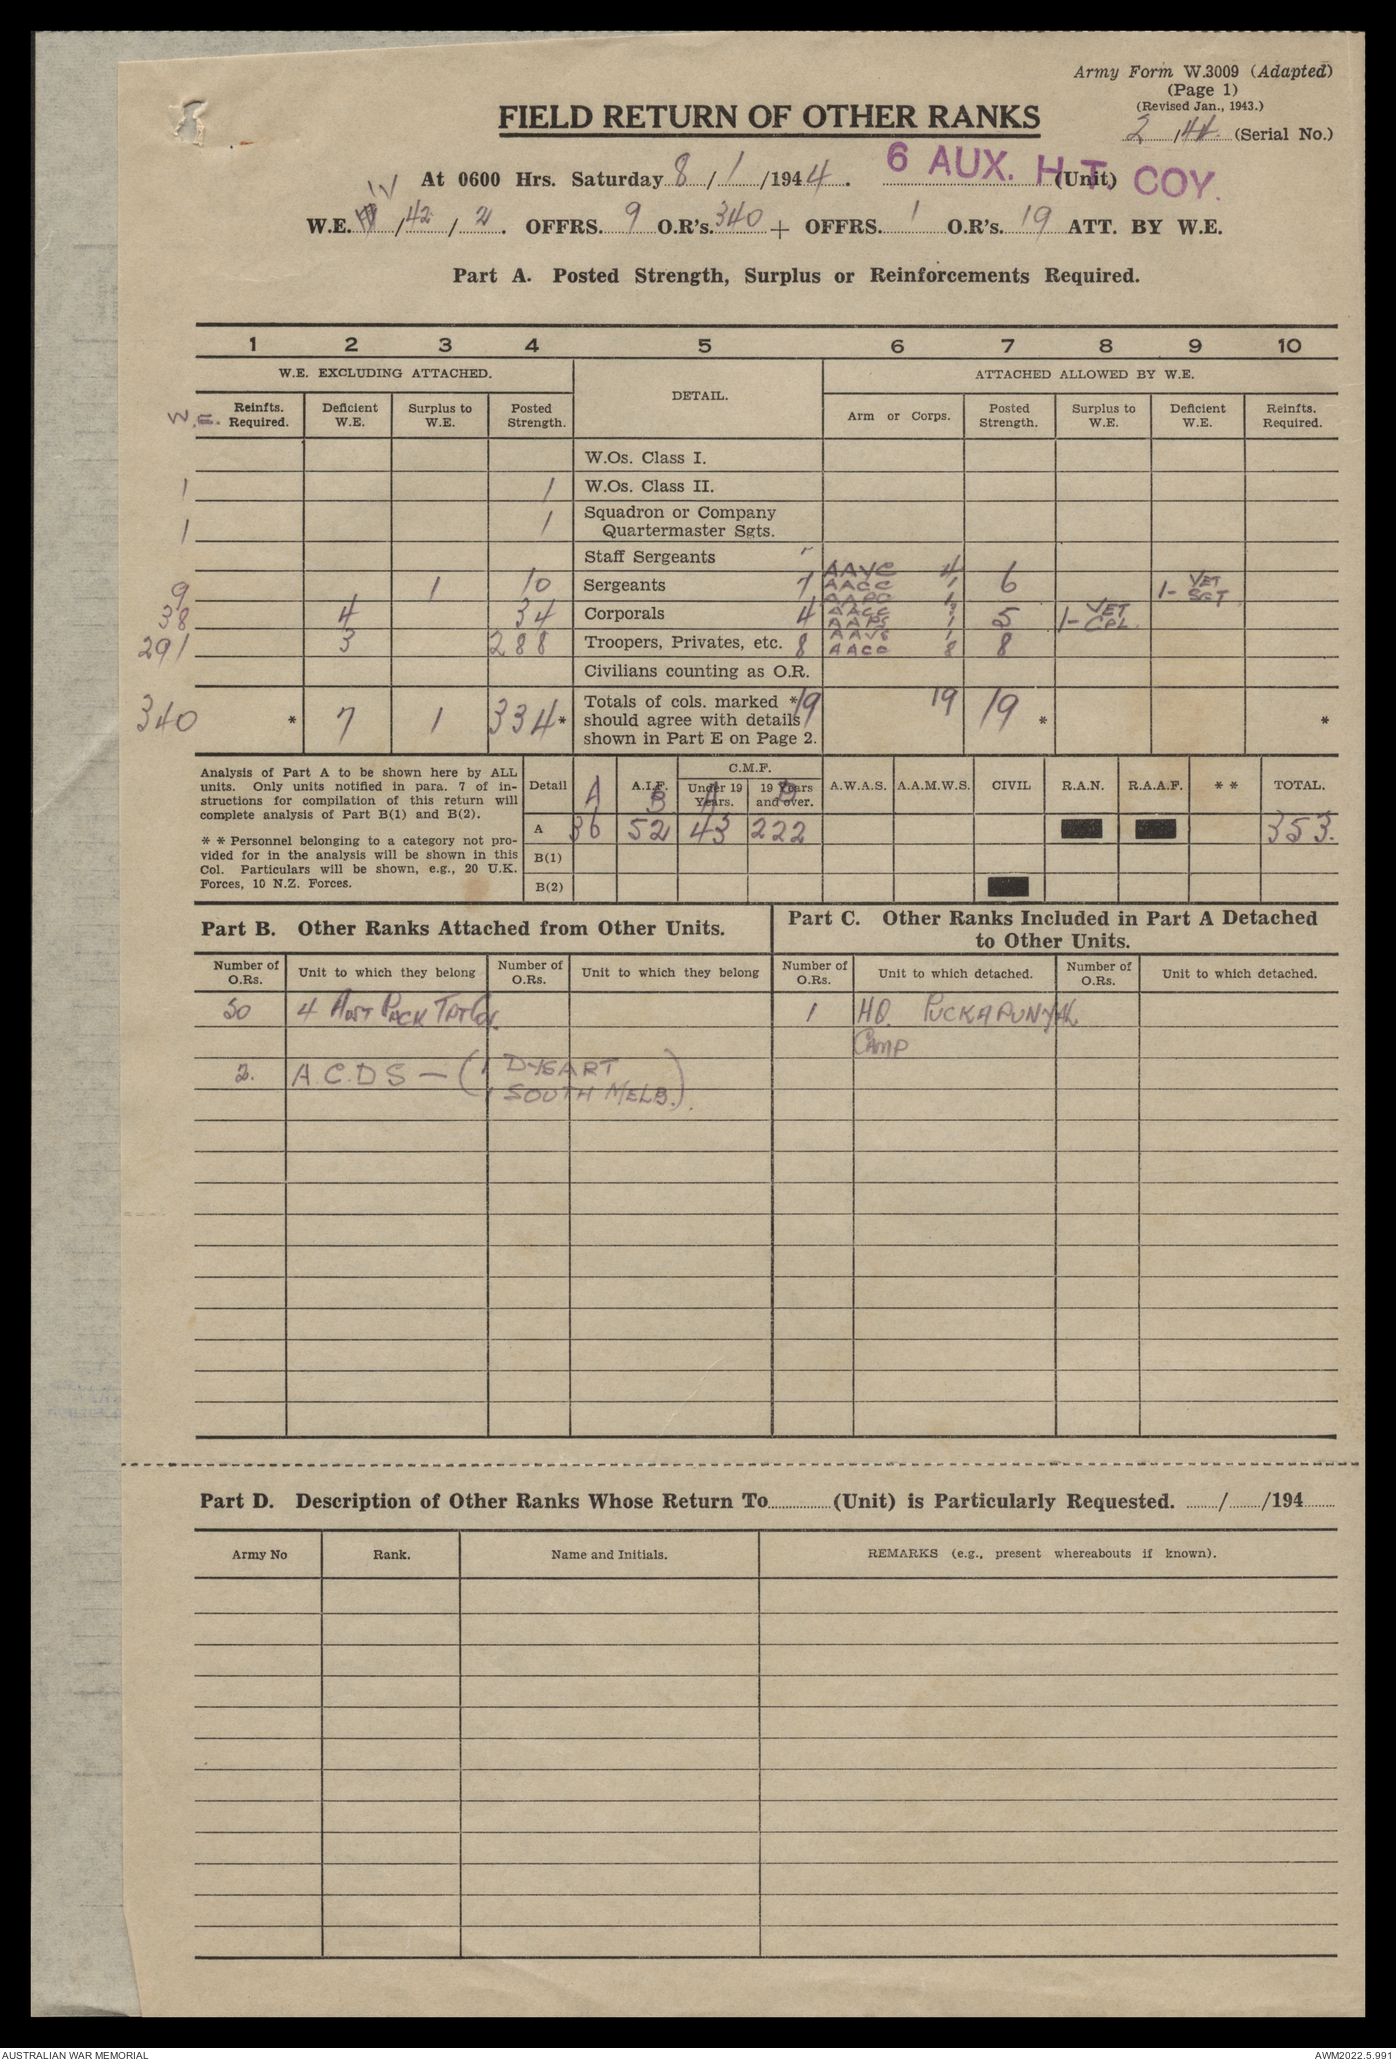 Army Form W.3009 (Adapted)
(Page 1)
(Revised Jan., 1943.)
2 / 44 (Serial No.)
FIELD RETURN OF OTHER RANKS
At 0600 Hrs. Saturday 8 / 1 /1944. 6 AUX. H.T. COY. (Unit)
W.E. IV / 42 / 2. OFFRS. 9 O.R's. 340 + OFFRS. 1 O.R's. 19 ATT. BY W.E.
Part A. Posted Strength, Surplus or Reinforcements Required.
1 2 3 4 5 6 7 8 9 10
W.E. EXCLUDING ATTACHED. DETAIL. ATTACHED ALLOWED BY W.E.
W.E. Reinfts. Required. Deficient W.E. Surplus to W.E. Posted Strength. Arm or Corps. Posted Strength. Surplus to W.E. Deficient W.E. Reinfts. Required.
W.Os. Class I.
1 1 W.Os. Class II.
1 1 Squadron or Company Quartermaster Sgts.
Staff Sergeants
9 1 10 Sergeants 7 AAVC 4 AACC 1 6 1- VET SGT
38 4 34 Corporals 4 AACC 3 AAPS 1 5 1- VET CPL.
291 3 288 Troopers, Privates, etc. 8 AACC 8 8
Civilians counting as O.R.
340 * 7 1 334* Totals of cols. marked * should agree with details shown in Part E on Page 2. 19 19 19 * *
Analysis of Part A to be shown here by ALL
units. Only units notified in para. 7 of in-
structions for compilation of this return will
complete analysis of Part B(1) and B(2).
* * Personnel belonging to a category not pro-
vided for in the analysis will be shown in this
Col. Particulars will be shown, e.g., 20 U.K.
Forces, 10 N.Z. Forces.
C.M.F.
Detail A A.I.F. B Under 19 Years. A 19 Years and over. B A.W.A.S. A.A.M.W.S. CIVIL R.A.N. R.A.A.F. * * TOTAL.
A 36 52 43 222 353.
B(1)
B(2)
Part B. Other Ranks Attached from Other Units.
Part C. Other Ranks Included in Part A Detached
to Other Units.
Number of O.Rs. Unit to which they belong Number of O.Rs. Unit to which they belong Number of O.Rs. Unit to which detached. Number of O.Rs. Unit to which detached.
50 4 Aust Pack Tpt Coy. 1 HQ. PUCKAPUNYAL
CAMP
2. A.C.D.S – (1 DYSART
1 SOUTH MELB.).
Part D. Description of Other Ranks Whose Return To (Unit) is Particularly Requested. / /194
Army No Rank. Name and Initials. REMARKS (e.g., present whereabouts if known).
AUSTRALIAN WAR MEMORIAL AWM2022.5.991